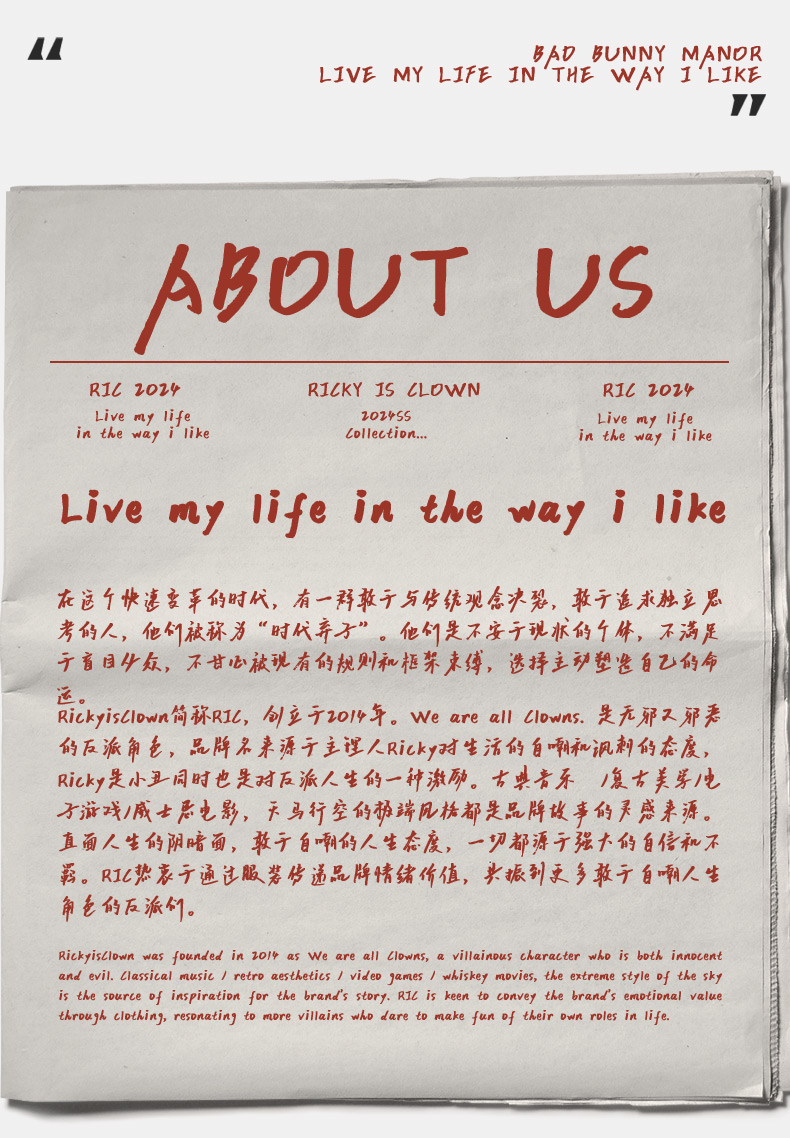 “
BAD BUNNY MANOR
LIVE MY LIFE IN THE WAY I LIKE
”
ABOUT US
RIC 2024
Live my life
in the way i like
RICKY IS CLOWN
2024SS
Collection...
RIC 2024
Live my life
in the way i like
Live my life in the way i like
在这个快速变革的时代，有一群敢于与传统观念决裂，敢于追求独立思
考的人，他们被称为“时代弃子”。他们是不安于现状的个体，不满足
于盲目从众，不甘心被现有的规则和框架束缚，选择主动塑造自己的命
运。
RickyisClown简称RIC，创立于2014年。We are all Clowns. 是无邪又邪恶
的反派角色，品牌名来源于主理人Ricky对生活的自嘲和讽刺的态度，
Ricky是小丑同时也是对反派人生的一种激励。古典音乐 /复古美学/电
子游戏/威士忌电影，天马行空的极端风格都是品牌故事的灵感来源。
直面人生的阴暗面，敢于自嘲的人生态度，一切都源于强大的自信和不
羁。RIC热衷于通过服装传递品牌情绪价值，共振到更多敢于自嘲人生
角色的反派们。
RickyisClown was founded in 2014 as We are all Clowns, a villainous character who is both innocent
and evil. Classical music / retro aesthetics / video games / whiskey movies, the extreme style of the sky
is the source of inspiration for the brand's story. RIC is keen to convey the brand's emotional value
through clothing, resonating to more villains who dare to make fun of their own roles in life.